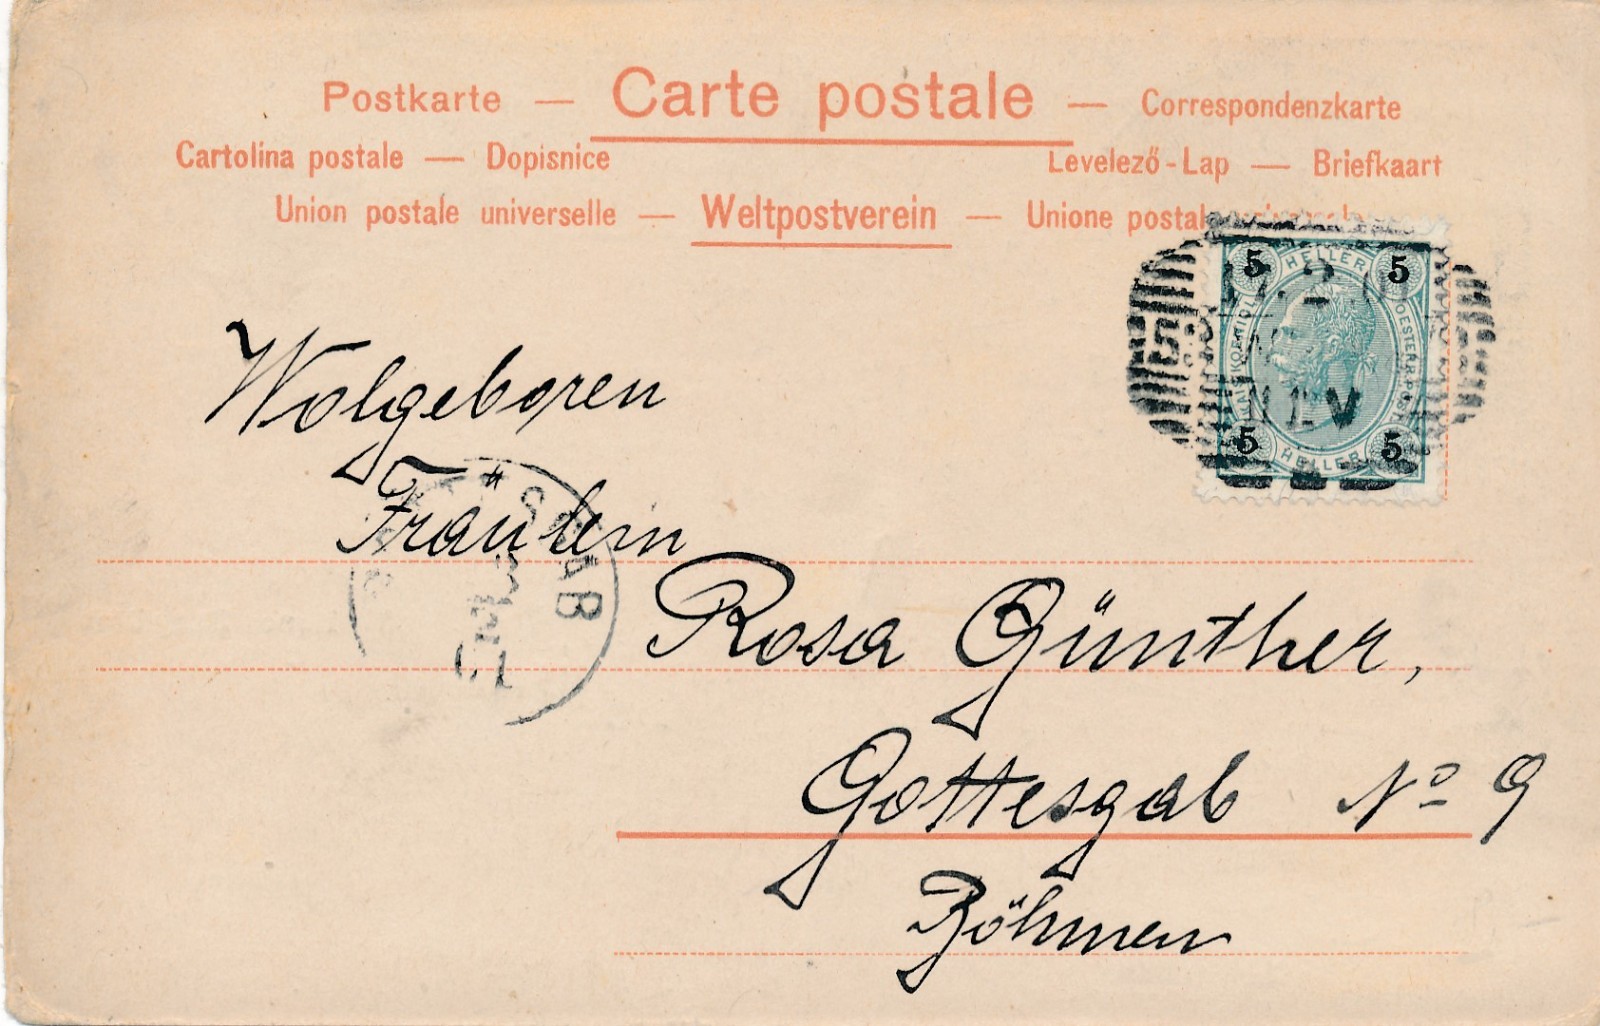 Postkarte — Carte postale — Correspondenzkarte
Cartolina postale — Dopisnice Levelező-Lap — Briefkaart
Union postale universelle — Weltpostverein — Unione postale
5 HELLER 5
5 HELLER 5
Wolgeboren
Fräulein
Rosa Günther,
Gottesgab No 9
Böhmen